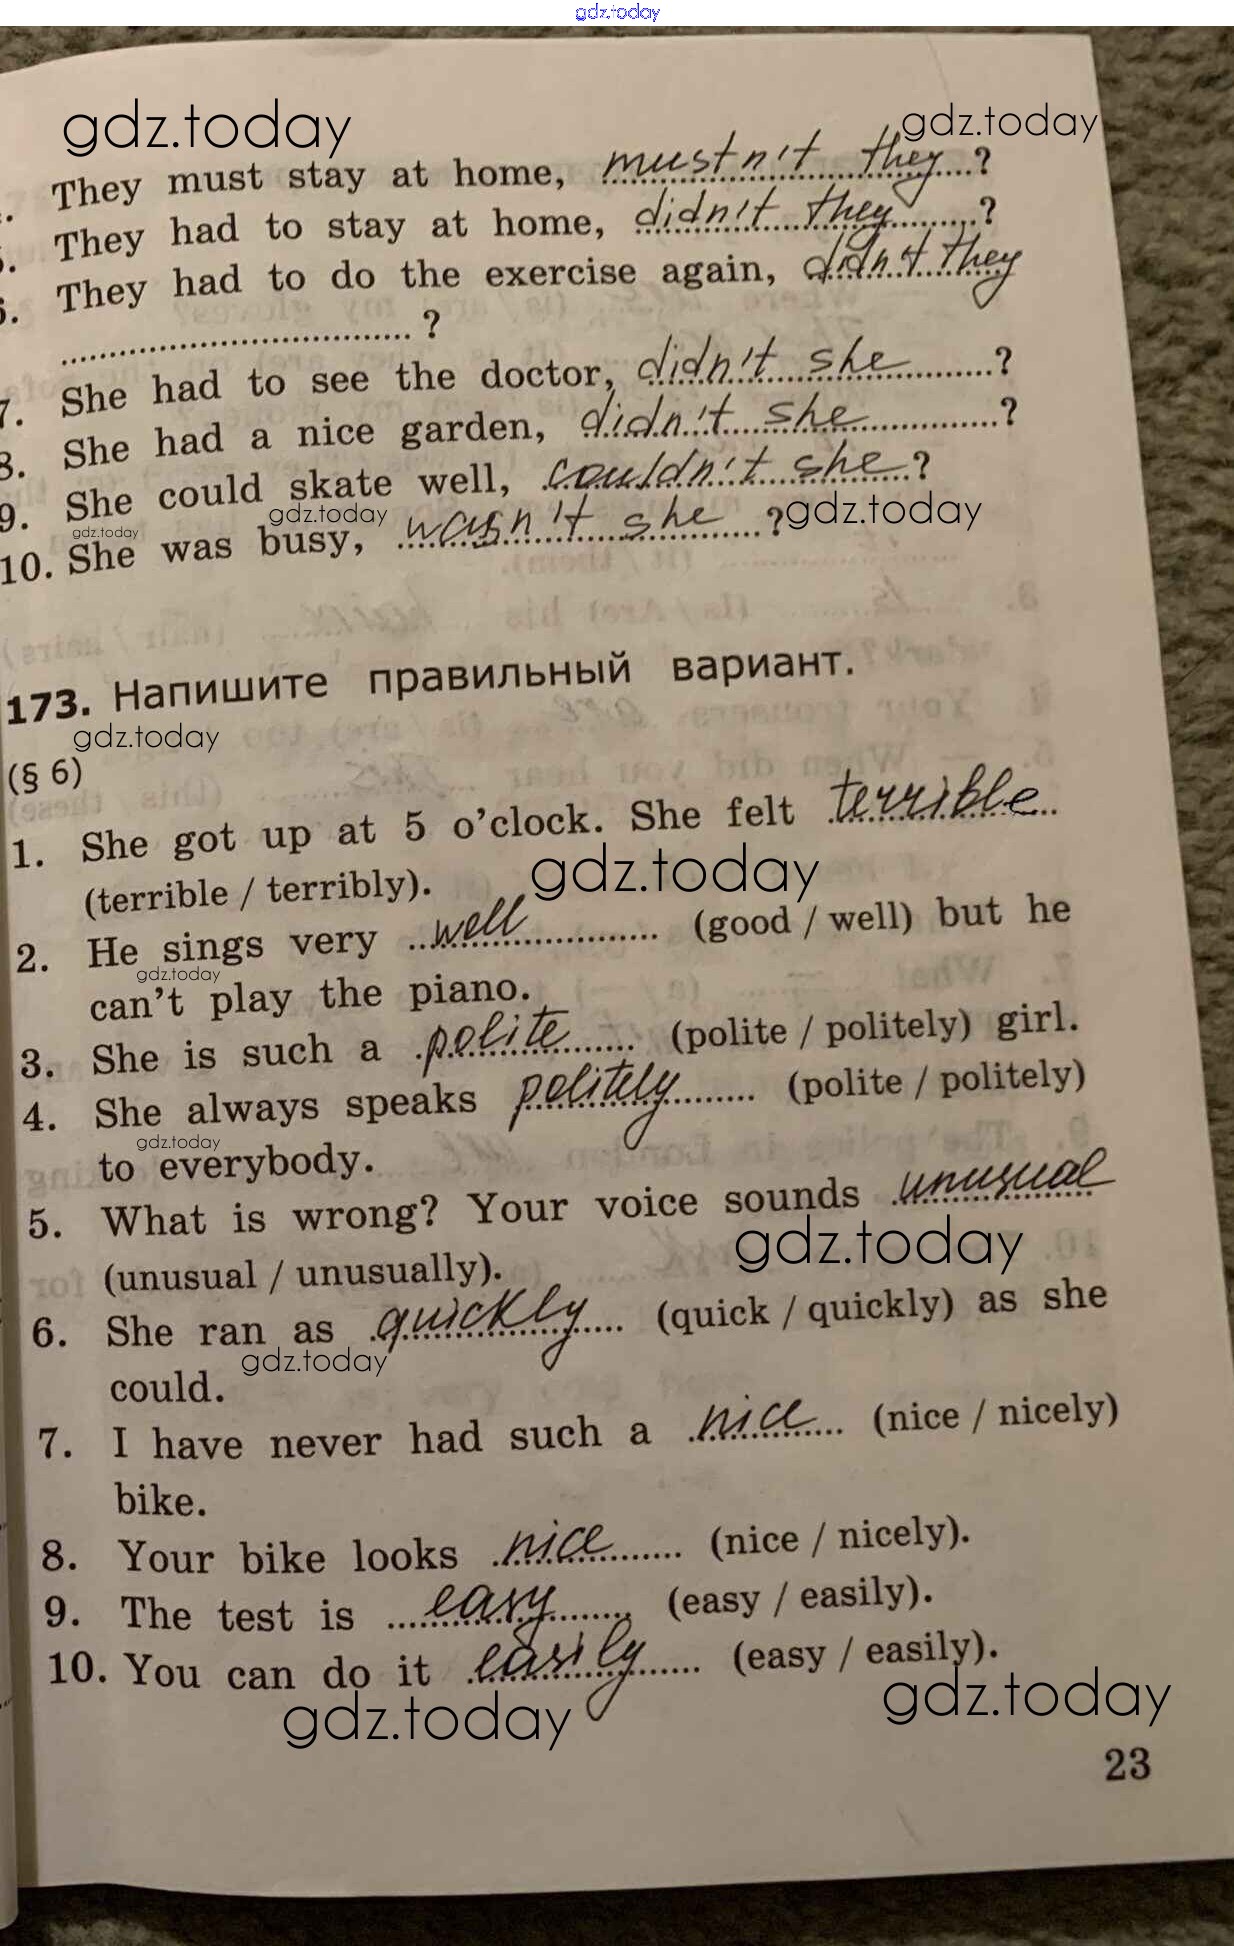 gdz.today
gdz.today
gdz.today
They must stay at home, mustn't they ?
They had to stay at home, didn't they ?
They had to do the exercise again, didn't they
?
7. She had to see the doctor, didn't she ?
8. She had a nice garden, didn't she ?
9. She could skate well, couldn't she ?
gdz.today
gdz.today
gdz.today
10. She was busy, wasn't she ?
173. Напишите правильный вариант.
gdz.today
(§ 6)
1. She got up at 5 o'clock. She felt terrible
(terrible / terribly).
gdz.today
2. He sings very well (good / well) but he
gdz.today
can't play the piano.
3. She is such a polite (polite / politely) girl.
4. She always speaks politely (polite / politely)
gdz.today
to everybody.
5. What is wrong? Your voice sounds unusual
gdz.today
(unusual / unusually).
6. She ran as quickly (quick / quickly) as she
gdz.today
could.
7. I have never had such a nice (nice / nicely)
bike.
8. Your bike looks nice (nice / nicely).
9. The test is easy (easy / easily).
10. You can do it easily (easy / easily).
gdz.today
gdz.today
23